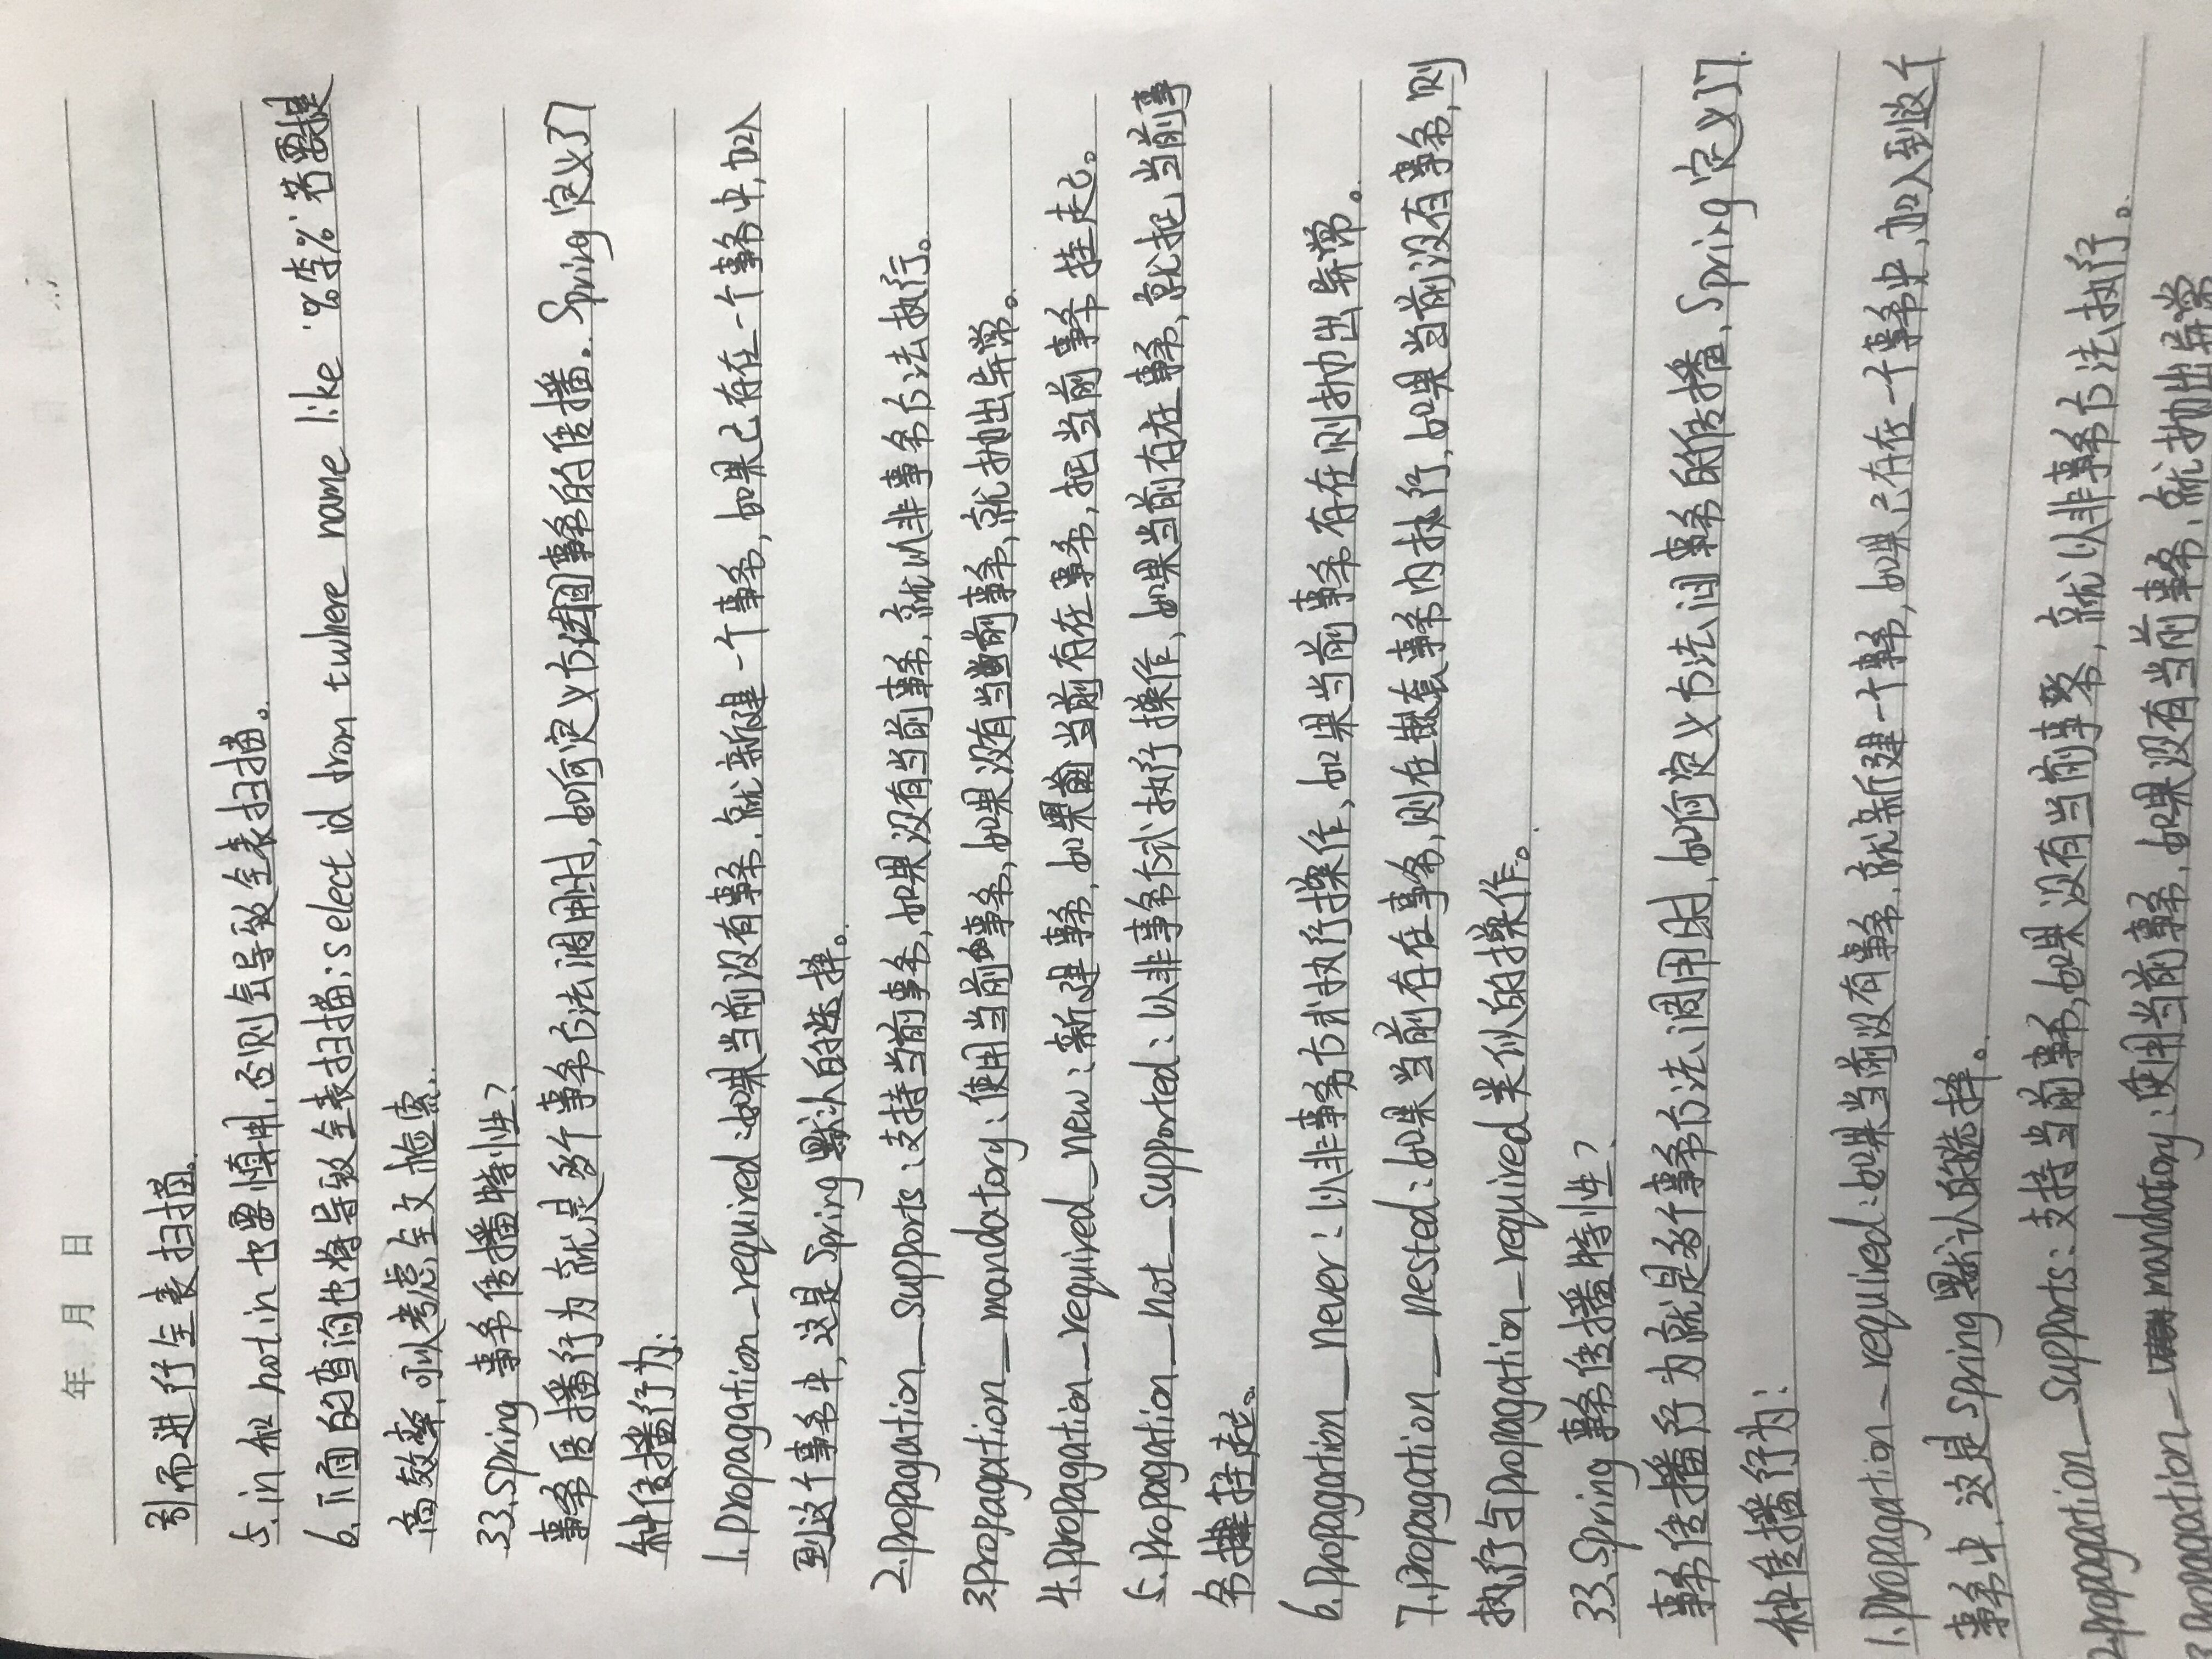 年 月 日
引而进行全表扫描。
5.in和 not in 也要慎用,否则会导致全表扫描。
6.下面的查询也将导致全表扫描:select id from t where name like '%李%'若要提
高效率,可以考虑全文检索.
33.Spring 事务传播特性?
事务传播行为就是多个事务方法调用时,如何定义方法间事务的传播。Spring定义了7
种传播行为:
1.Propagation_required:如果当前没有事务,就新建一个事务,如果已存在一个事务中,加入
到这个事务中,这是Spring默认的选择。
2.Propagation_supports:支持当前事务,如果没有当前事务,就以非事务方法执行。
3.Propagation_mandatory:使用当前事务,如果没有当前事务,就抛出异常。
4.Propagation_required_new:新建事务,如果当前存在事务,把当前事务挂起。
5.Propagation_not_supported:以非事务方式执行操作,如果当前存在事务,就把当前事
务挂起。
6.Propagation_never:以非事务方式执行操作,如果当前事务存在则抛出异常。
7.Propagation_nested:如果当前存在事务,则在嵌套事务内执行,如果当前没有事务,则
执行与Propagation_required类似的操作。
33.Spring事务传播特性?
事务传播行为就是多个事务方法调用时,如何定义方法间事务的传播,Spring定义了7
种传播行为:
1.Propagation_required:如果当前没有事务,就新建一个事务,如果已存在一个事务中,加入到这个
事务中,这是Spring默认的选择。
2.Propagation_supports:支持当前事务,如果没有当前事务,就以非事务方法执行。
3.Propagation_mandatory:使用当前事务,如果没有当前事务,就抛出异常